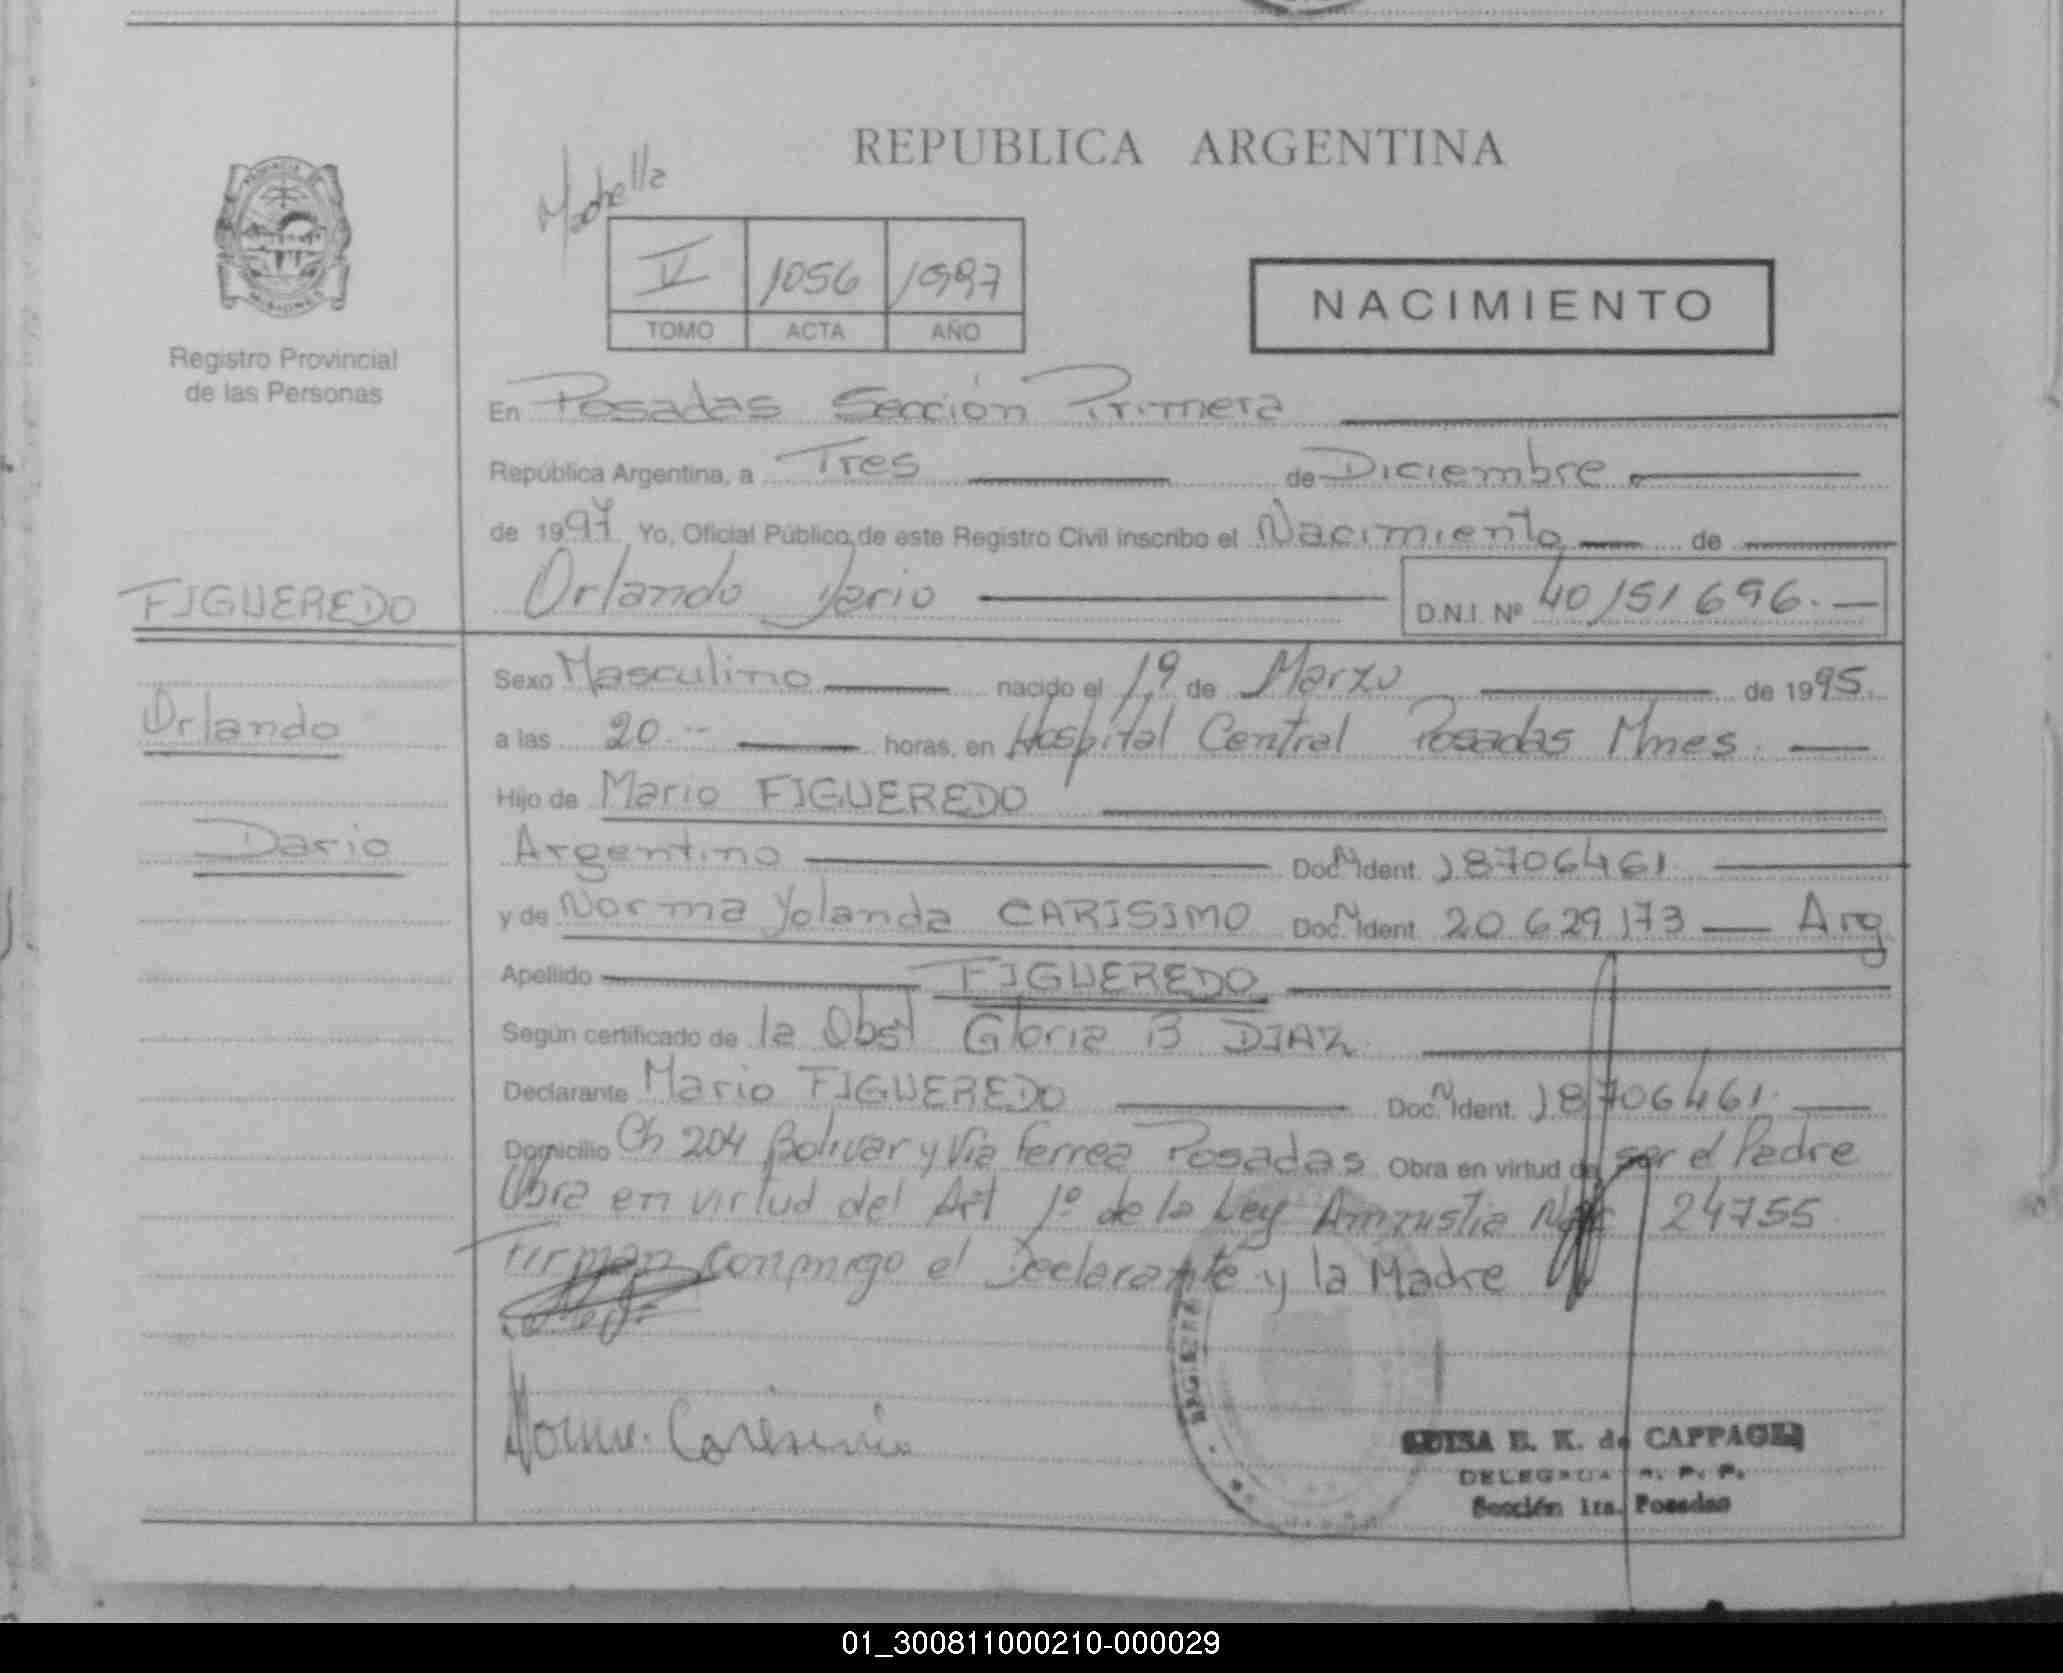 REPUBLICA ARGENTINA
PROVINCIA
MISIONES
Registro Provincial
de las Personas
V 1056 1997
TOMO ACTA AÑO
NACIMIENTO
En Posadas Sección Primera
República Argentina, a Tres de Diciembre
de 1997 Yo, Oficial Público de este Registro Civil inscribo el Nacimiento de
FIGUEREDO
Orlando Dario D.N.I. Nº 40151696.
Sexo Masculino nacido el 19 de Marzo de 1995
Orlando
a las 20 horas, en Hospital Central Posadas Mnes.
Hijo de Mario FIGUEREDO
Dario
Argentino Doc. N Ident. 18706461
y de Norma Yolanda CARISIMO Doc. N Ident. 20 629 173 Arg
Apellido FIGUEREDO
Según certificado de la Obst Gloria B DIAZ
Declarante Mario FIGUEREDO Doc. N Ident. 18706461
Domicilio Ch 204 Bolivar y Via Ferrea Posadas Obra en virtud de ser el Padre
Obra en virtud del Art 1º de la Ley Amnustia 24755
Firman conmigo el Declarante y la Madre
REGISTRO
Norma Caresimo
LUISA E. K. de CAPPAGLI
DELEGADA R. P. P.
Sección 1ra. Posadas
01_300811000210-000029